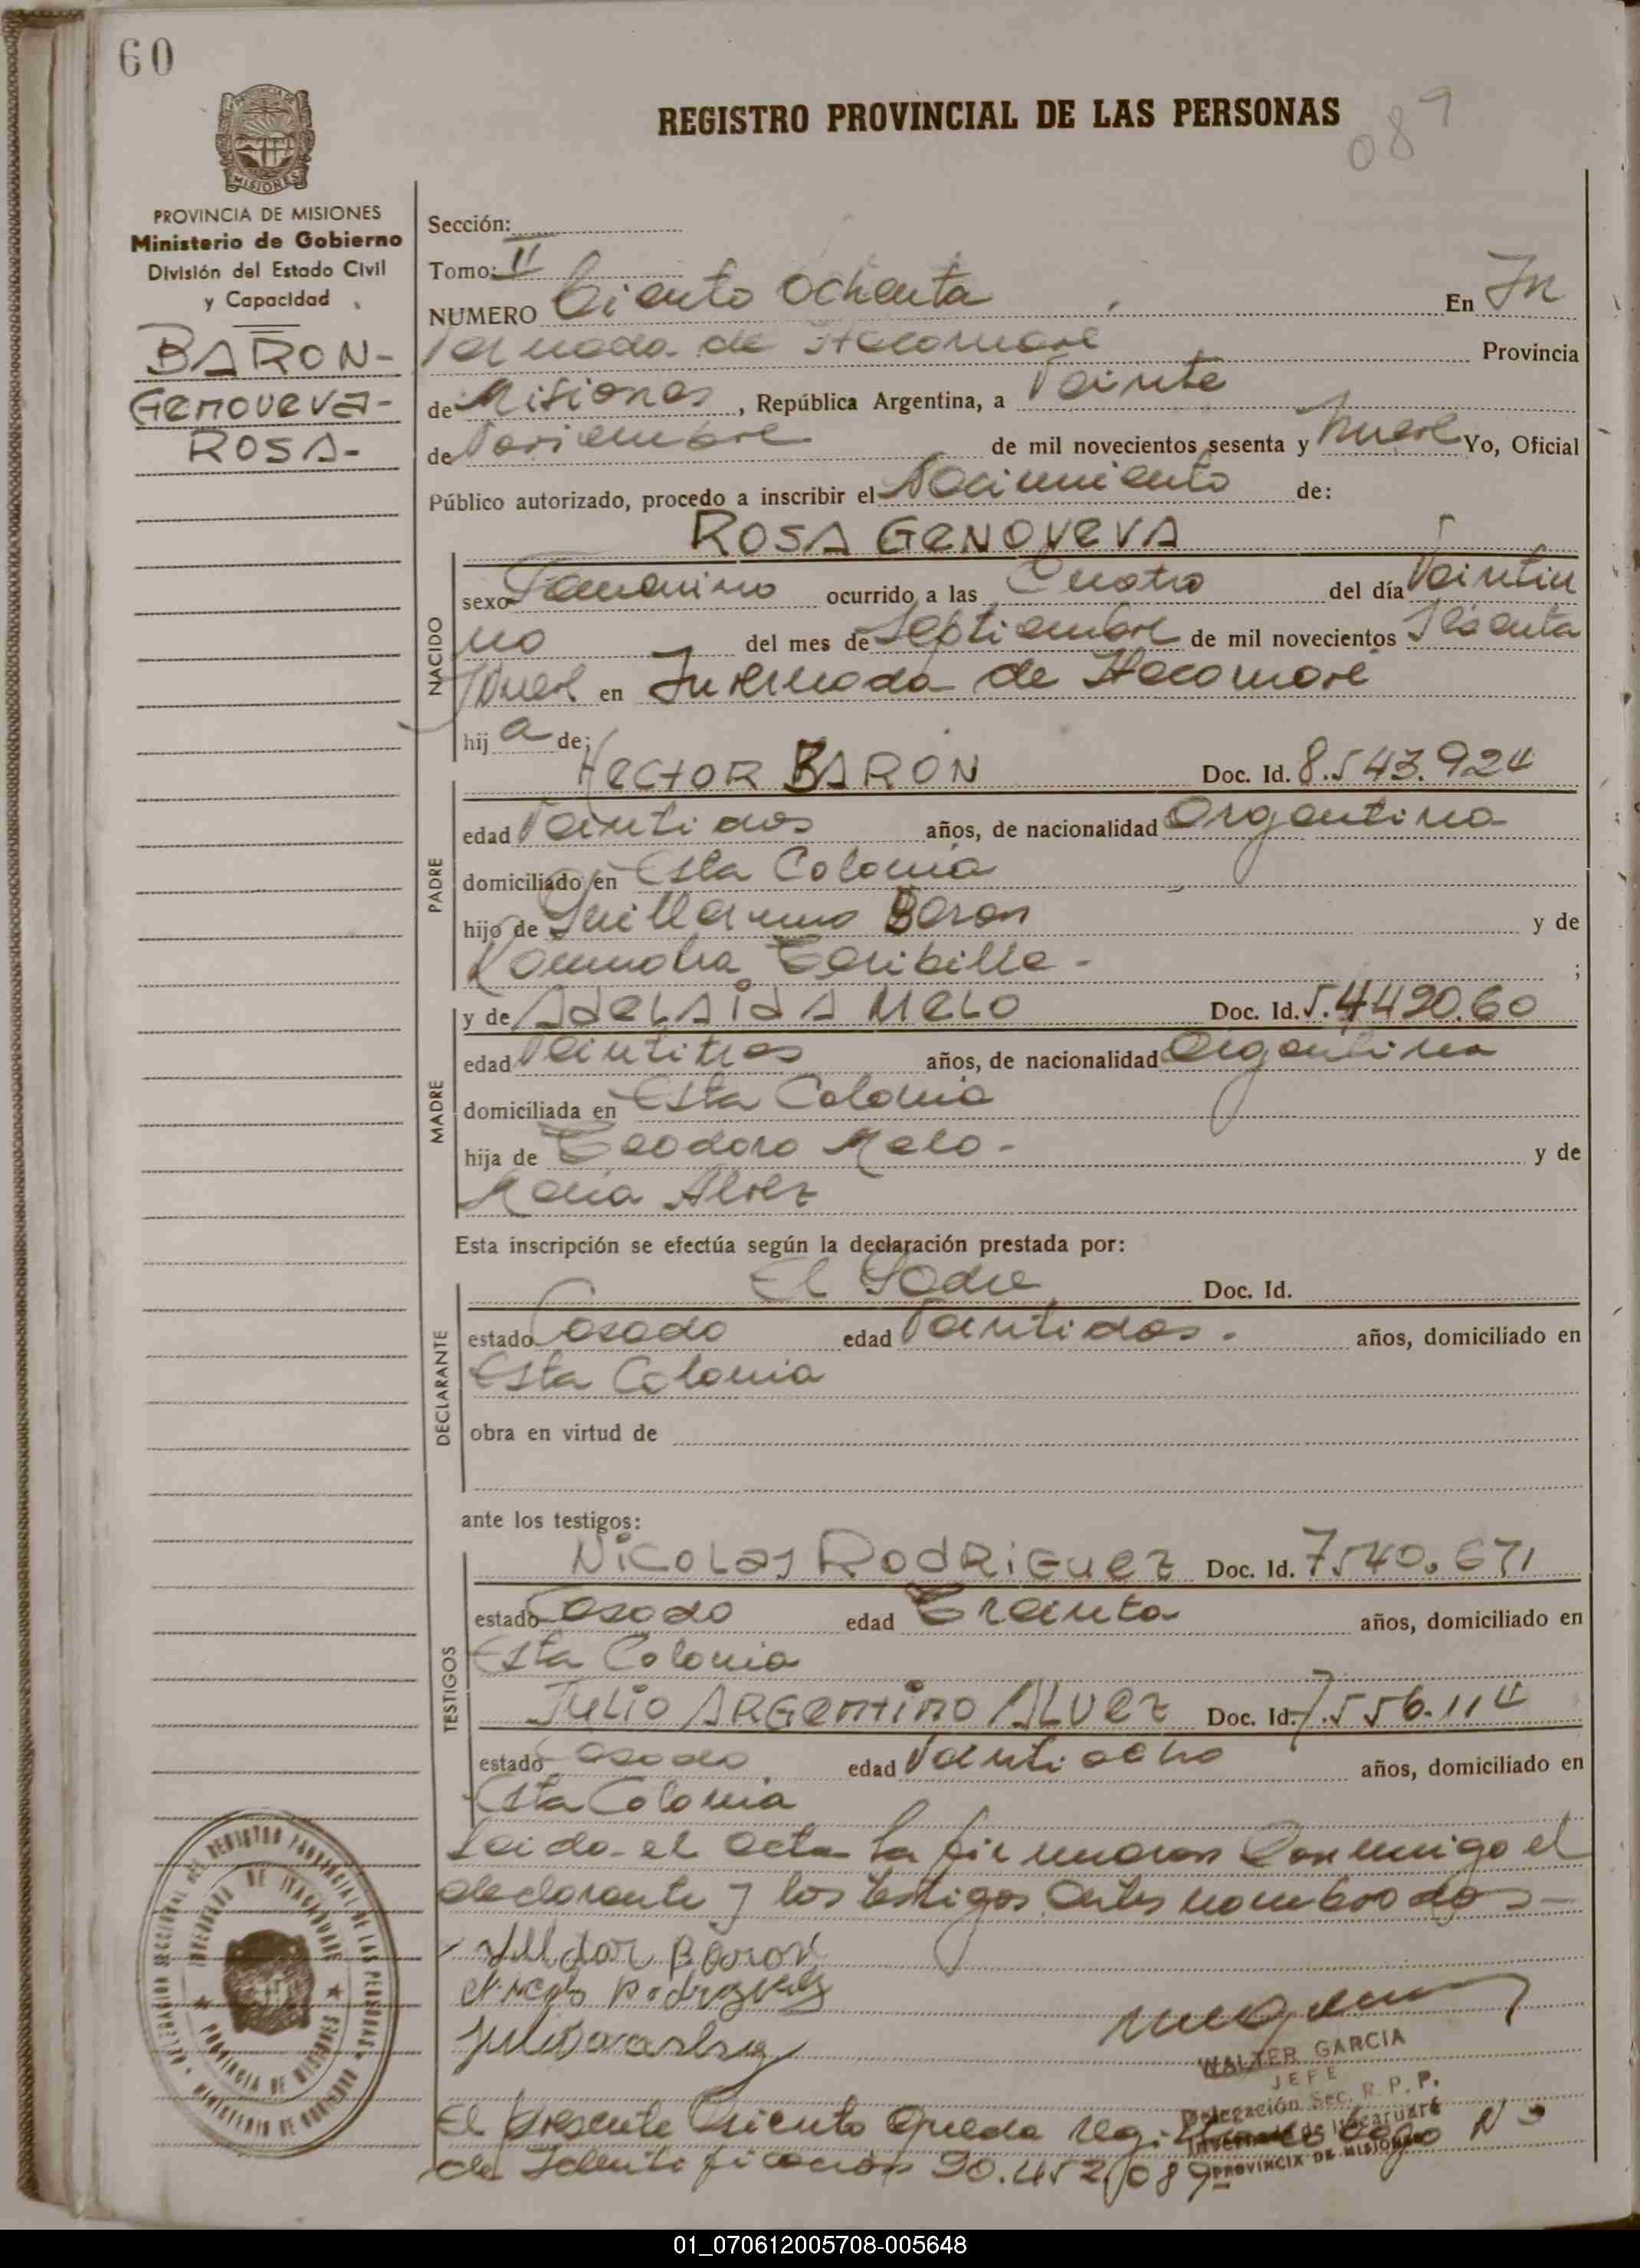 60
REGISTRO PROVINCIAL DE LAS PERSONAS
089
MISIONES
PROVINCIA DE MISIONES
Ministerio de Gobierno
División del Estado Civil
y Capacidad
BARON-
Genoveva-
ROSA-
Sección:
Tomo: II
NUMERO Ciento Ochenta En In
vernada de Itacaruare Provincia
de Misiones, República Argentina, a Veinte
de Noviembre de mil novecientos sesenta y Nueve Yo, Oficial
Público autorizado, procedo a inscribir el Nacimiento de:
ROSA GENOVEVA
NACIDO
sexo Femenino ocurrido a las Cuatro del día Veintiu
no del mes de Septiembre de mil novecientos Sesenta
Nueve en Invernada de Itacaruare
hija de:
PADRE
HECTOR BARON Doc. Id. 8.543.924
edad Veintidos años, de nacionalidad Argentina
domiciliado en Esta Colonia
hijo de Guillermo Baron y de
;
MADRE
y de ADELAIDA MELO Doc. Id. 5.4420.60
edad Veintitres años, de nacionalidad Argentina
domiciliada en Esta Colonia
hija de Teodoro Melo- y de
Maria Alvez
Esta inscripción se efectúa según la declaración prestada por:
DECLARANTE
El Padre Doc. Id.
estado Casado edad Veintidos. años, domiciliado en
Esta Colonia
obra en virtud de
ante los testigos:
TESTIGOS
NICOLAS RODRIGUEZ Doc. Id. 7540.671
estado Casado edad Treinta años, domiciliado en
Esta Colonia
JULIO ARGENTINO ALVEZ Doc. Id. 7.556.114
estado Casado edad Veintiocho años, domiciliado en
Esta Colonia
Leido el acta la firmaron Conmigo el
declarante y los testigos antes nombrados-
Baron
WALTER GARCIA
JEFE
Delegación Sec. R. P. P.
Invernada de Itacaruaré
PROVINCIA DE MISIONES
El presente asiento queda bajo Nº
de Identificacion 20.452.089
DELEGACION SECCIONAL DEL REGISTRO PROVINCIAL DE LAS PERSONAS
INVERNADA DE ITACARUARE
PROVINCIA DE MISIONES
MINISTERIO DE GOBIERNO
01_070612005708-005648